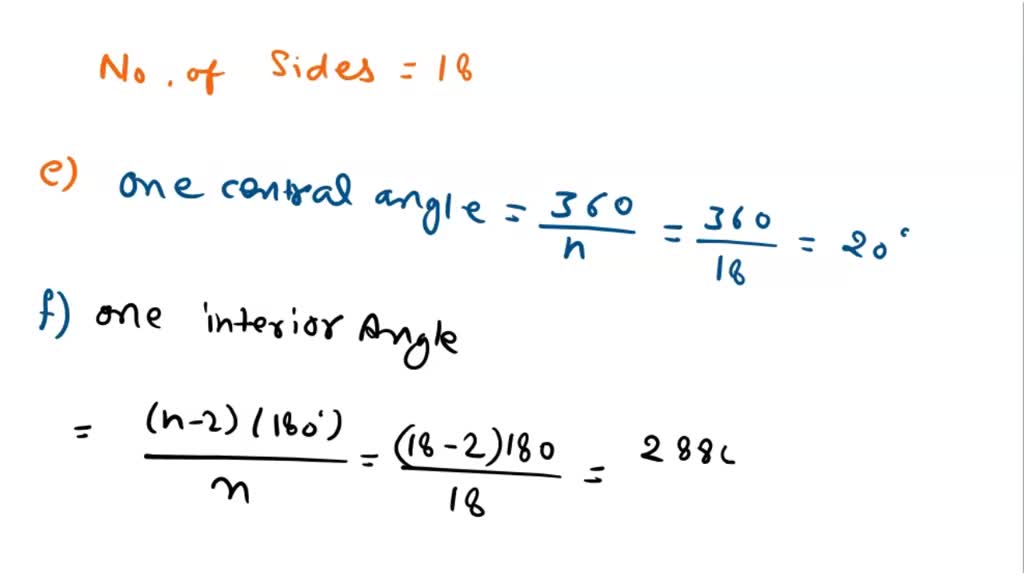 No. of Sides = 18
e) one central angle = 360/n = 360/18 = 20°
f) one interior Angle
= (n-2)(180°)/n = (18-2)180/18 = 288